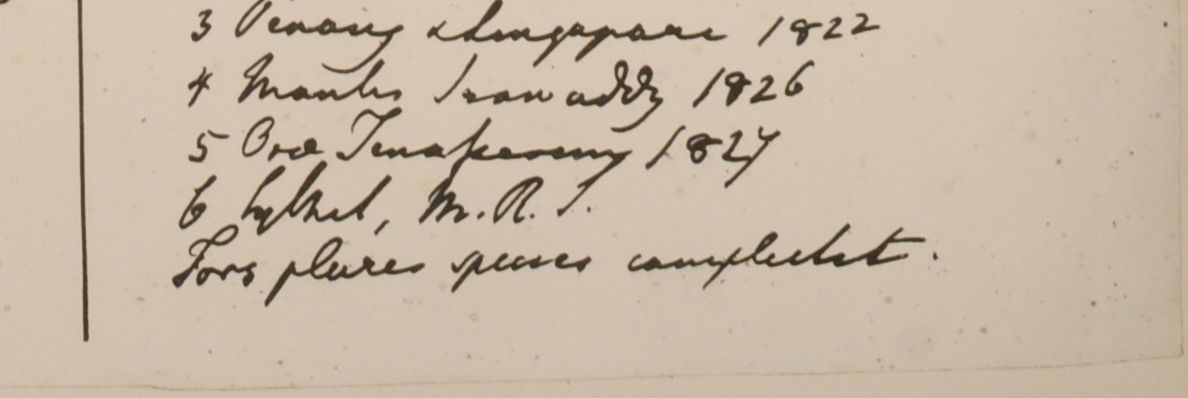 3 Penang & Singapore 1822
4 Montes Irawaddy 1826
5 Ora Tenasserim 1827
6 Sylhet, M.R.S.
Fors plures species complectet.